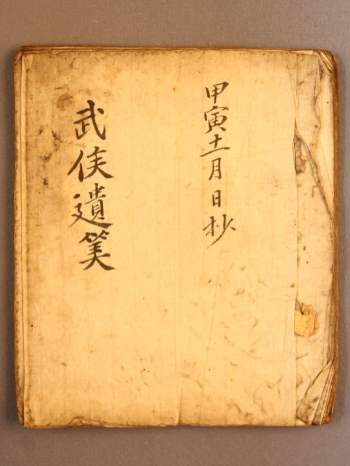 甲寅十一月 日抄
武侯遺筴